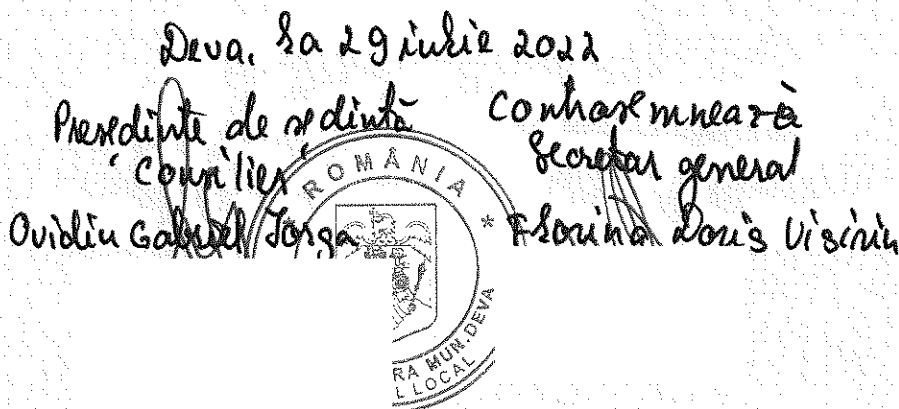 Deva, la 29 iulie 2022
Președinte de ședință
Consilier
Ovidiu Gabriel Iorga
Contrasemnează
Secretar general
Florina Doris Visirin
ROMÂNIA
RA MUN. DEVA
L LOCAL